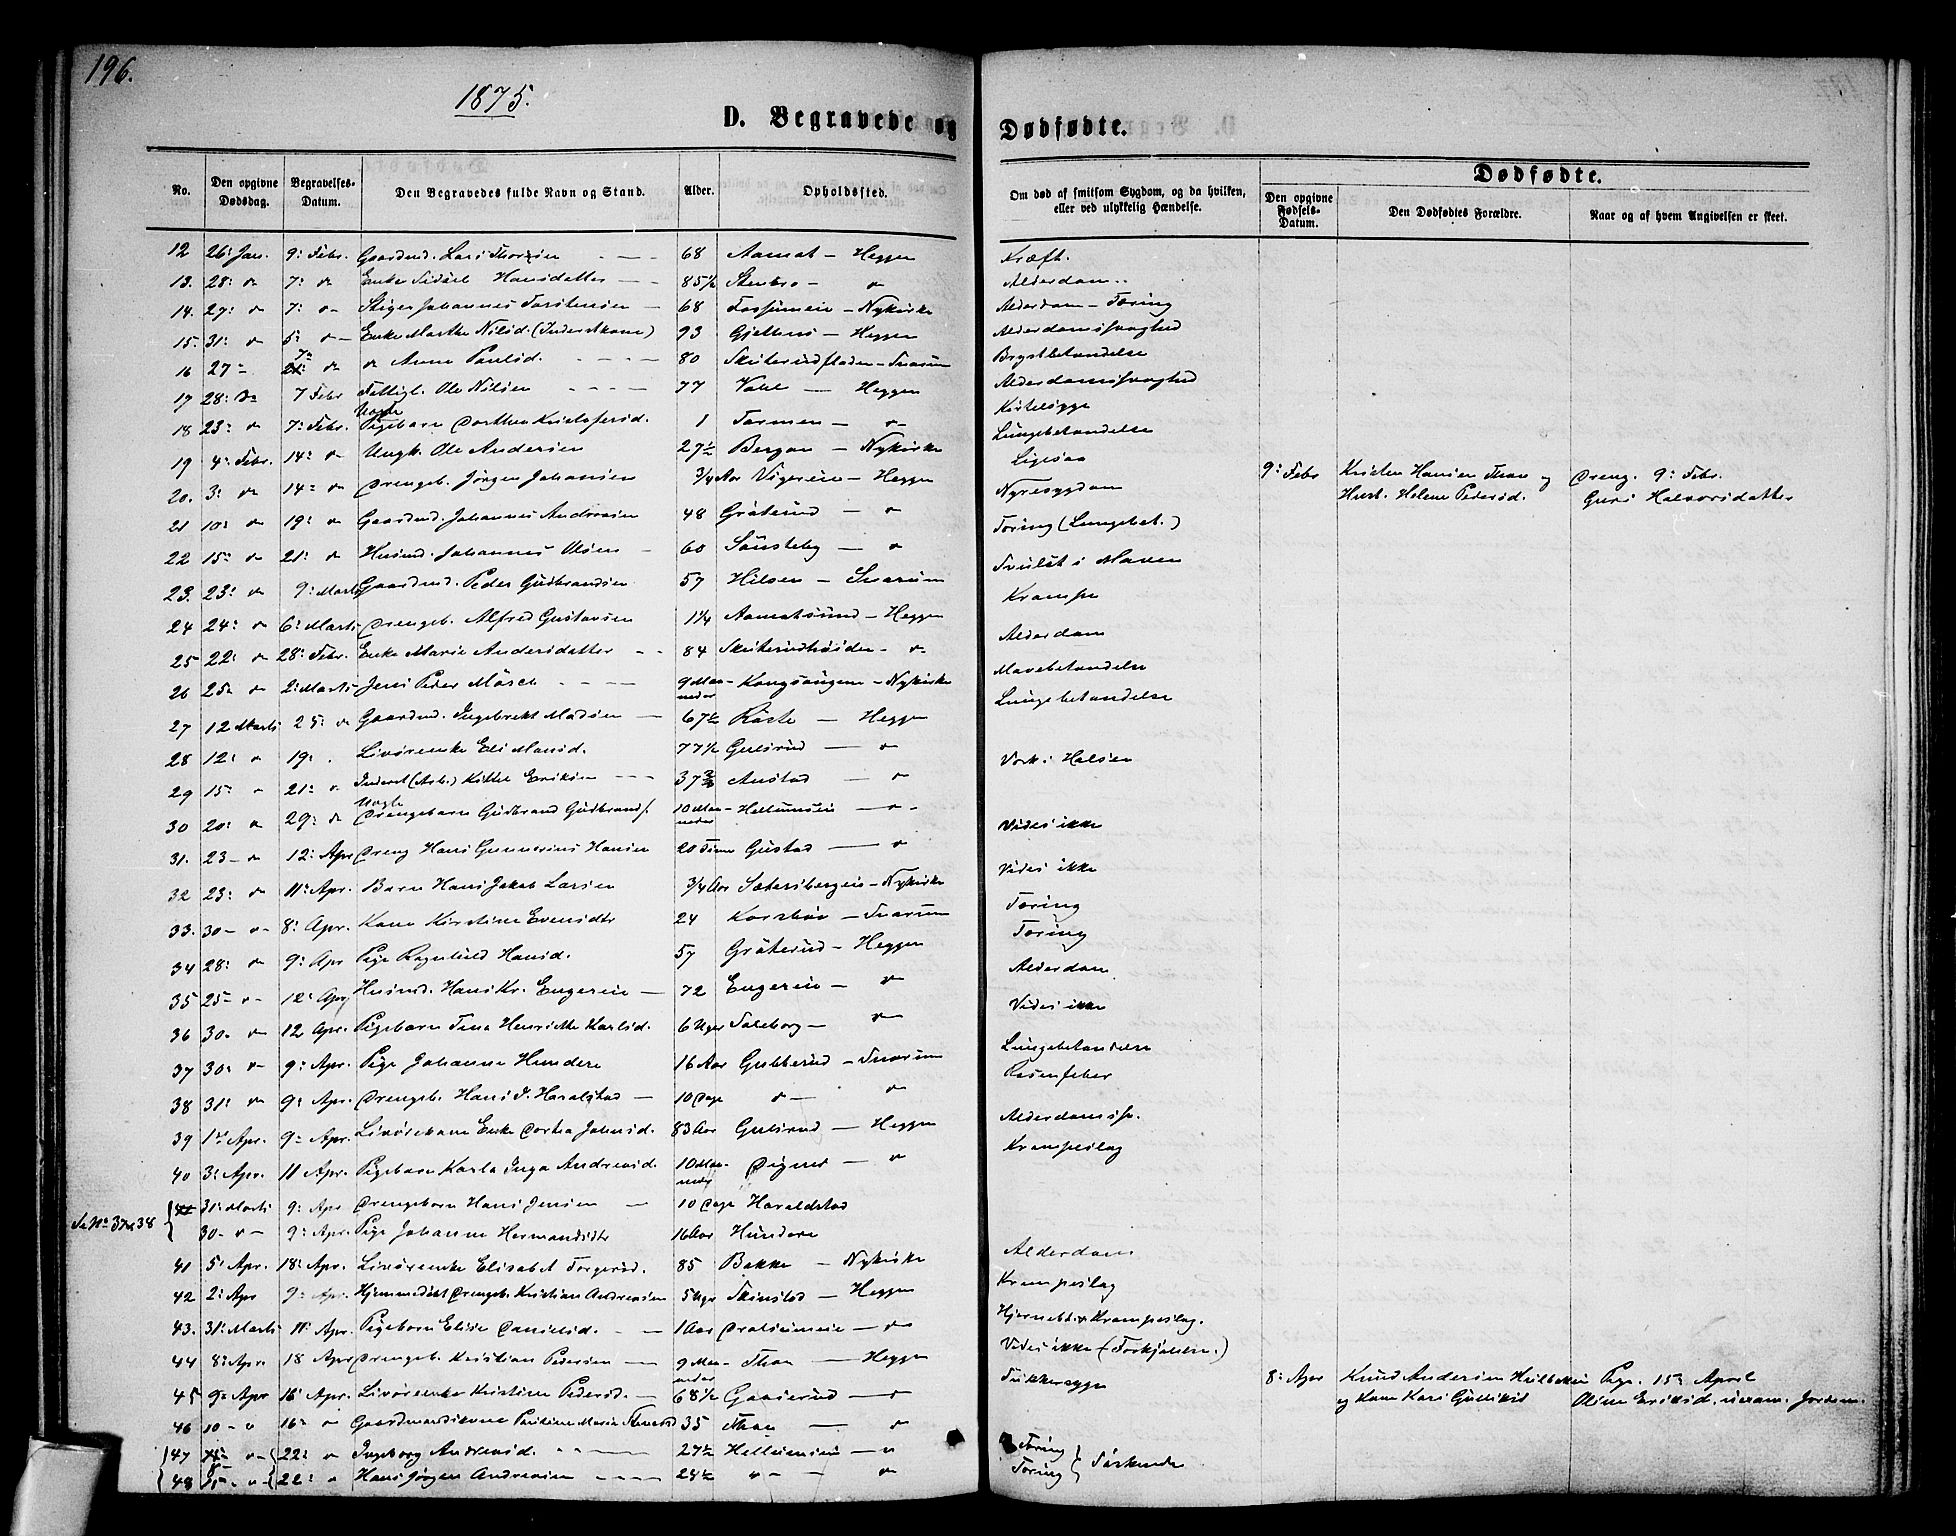 196.
1875.
D. Begravede og Dødfødte.
No. Den opgivne Dødsdag. Begravelses-Datum. Den Begravedes fulde Navn og Stand. Alder. Opholdssted. Om død af smitsom Sygdom, og da hvilken, eller ved ulykkelig Hændelse. Dødfødte.
Den opgivne Fødsels-Datum. Den Dødfødtes Forældre. Naar og af hvem Angivelsen er skeet.
12 26: Jan. 9: Febr. Gaardmd. Lars Thorsen 68 Aamot - Heggen Kræft.
13. 28: " 7: " Enke Sidsel Hansdatter 85 1/2 Stenbro - " Alderdom..
14. 27: " 7: " Stiger Johannes Torstensen 68 Fossumeie - Nykirke Alderdom - Tæring
15. 31: " 5: " Enke Marthe Nilsd. (Inderstkone) 93 Heggen Alderdomssvaghed
16 27 " 7 " " Anne Paulsd. 80 Skuterudfladen - Snarum Brystbetændelse
17 28: " 7 Febr Fattigl. Ole Nilsen 77 Heggen Alderdomssvaghed
18 23: " 7: Febr. Uægte Pigebarn Dorthea Kristofersd. 1 " Kirtelsyge
19 4: Febr. 14: " Ungk. Ole Andersen 27 1/2 Bergan - Nykirke Lungebetændelse
20. 3: " 14: " Drengeb. Jørgen Johansen 3/4 Aar Vigereie - Heggen Ligesaa
9: Febr Kristen Hansen Thon og Hust. Helene Pedersd. Dreng. 9: Febr. Guri Halvorsdatter
21 10: " 19: " Gaardmd. Johannes Andersen 48 Gråterud - " Nyresygdom
22 15: " 21: " Husmd. Johannes Olsen 60 Sønsteby - " Tæring (Lungebet.)
23. 23: " 9: Marts Gaardmd. Peder Gudbrandsen 57 Hilsen - Snarum Svulst i Maven
24 24: " 6: Marts Drengeb. Alfred Gustavsen 1 1/4 Aamotsund - Heggen Krampe
25 22: " 28: Febr. Enke Marie Andersdatter 84 " Alderdom
26 25 " 2: Marts Jens Peder Mosch 9 Maaneder Kongsaugene - Nykirke Mavebetændelse
27 12 Marts 25: " Gaardmd. Ingebrekt Madsen 67 1/2 - Heggen Lungebetændelse
28 12: " 19: Livøreenke Eli Monsd. 77 1/2 Gulsrud - "
29 15: " 21: " Inderst (Arb.) Kittel Eriksen 37 2/3 Austad - " Værk i Halsen
30 20: " 29: " Uægte Drengebarn Gudbrand Gudbrands. 10 Maaneder - "
31. 23 - " 12: Apr Dreng Hans Gunnerius Hansen 20 Timer Gustad - " Vides ikke
32 23: " 11: Apr. Barn Hans Jakob Larsen 3/4 Aar Sætersbergeie - Nykirke Vides ikke
33. 30 - " 8: Apr. Kone Kirstine Evensdtr 24 Korsbøn - Snarum Tæring
34 28: " 9: Apr Pige Ragnhild Hansd. 57 Gråterud - Heggen Tæring
35 25 " 12: Apr Husmd. Hans Kr. Engereie 72 Engereie - " Alderdom
36 30 - " 12 Apr. Pigebarn Tina Henriette Karlsd. 6 Uger - " Vides ikke
37 30: " 9: Apr. Pige Johanne Hundere 16 Aar Gubberud - Snarum Lungebetændelse
38 31: " 9: Apr. Drengeb. Hans J. Haralstad 10 Dage " " Rosenfeber
39 1ste Apr. 9 - Apr. Livørekone Enke Dortea Johnsd. 83 Aar Gulsrud - Heggen Alderdomssv.
40 3: Apr. 11 Apr. Pigebarn Karla Inga Andreasd. 10 Maaneder - " Krampeslag
Se No 37 & 38 31: Marts 9: Apr Drengebarn Hans Jensen 10 Dage Haraldstad
30 - " - 9: Apr. Pige Johanne Hermandsdtr 16 Aar Hundere
41 5: Apr. 18: Apr. Livøreenke Elisabet Torgersd. 85 Bakke - Nykirke Alderdom
42 2: Apr 9: Apr. Hjemmedøbt Drengeb. Kristian Andreasen 5 Uger Skinstad - Heggen Krampeslag
43. 31: Marts 11: Apr. Pigebarn Elise Danielsd. 1 Aar - " Hjernebet. & Krampeslag.
44 8: Apr. 18 Apr Drengeb. Kristian Pedersen 9 Maaneder Thon - Heggen Vides ikke (Forkjølelse.)
45 9: Apr 16 Apr. Livøreenke Kristine Pedersd. 68 1/2 Gaaserud - " Sukkersyge
8: Apr Knud Andersen og Kone Kari Gulliksd Pige. 15de April Oline Eriksd. uexam. Jordem.
46 10 - " 16 - " Gaardmandskone Pauline Marie 35 Thon - "
47 " 22: " Ingeborg Andreasd. 27 1/2 " Tæring
48 " 22: " Hans Jørgen Andreasen 24 1/2 " " Tæring } Søskende